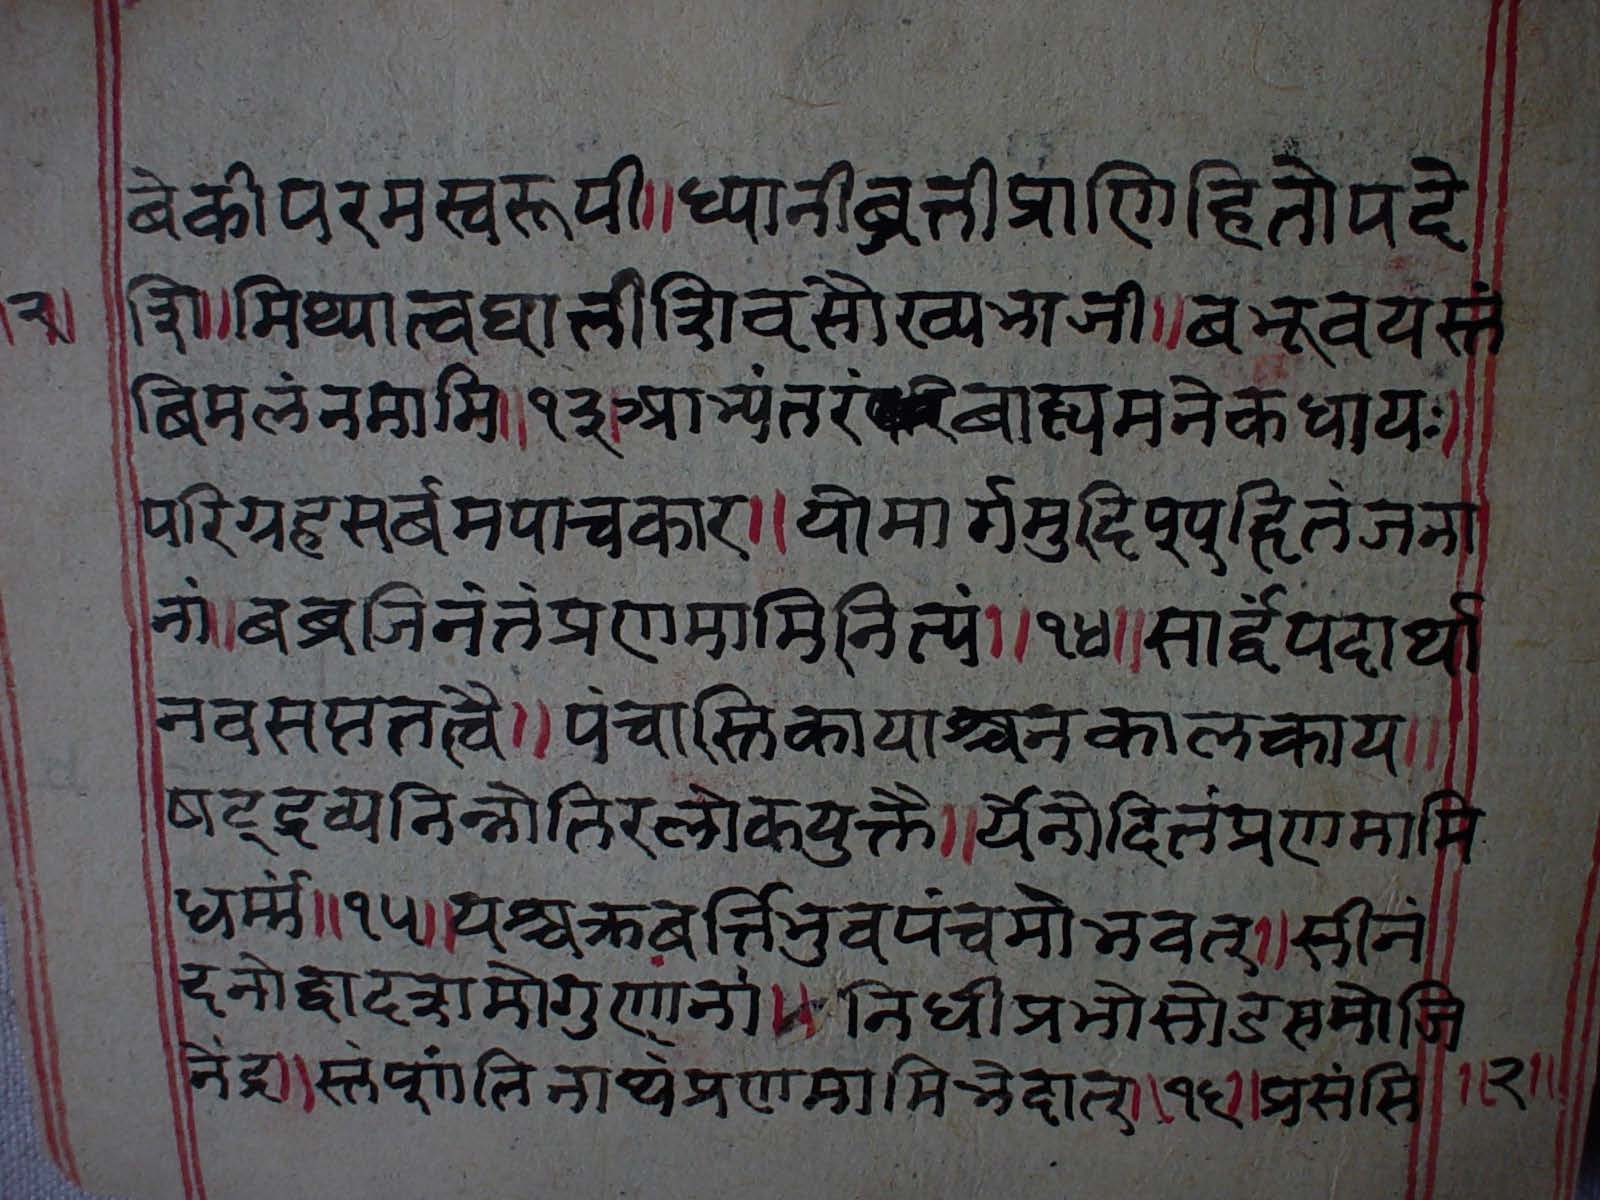 बेकीपरमस्वरूपी॥ध्यानीब्रत्तीप्राणिहितोपदे
शि॥मिथ्यात्वघातीशिवसौख्यभाजी॥बभूवयस्तं
बिमलंनमामि॥१३।आभ्यंतरं बाह्यमनेकधायः।
परिग्रहसर्बमपाचकार॥योमार्गमुदिप्पहितंजना
नां॥बब्रजिनंतंप्रणमामिनित्यं॥१४॥सार्द्धंपदार्था
नवसप्ततत्वै॥पंचास्तिकायाश्चनकालकाय॥
षट्द्रव्यनिन्नोतिरलोकयुक्तै॥र्येनोदितंप्रणमामि
धर्म्मं॥१५॥यश्चक्रबर्त्तिभुवपंचमोभवत्॥सीनं
दनोद्वादशमोगुणानां॥निधीप्रभोसोडसमोजि
नेंद्र॥स्तंषांतिनाथंप्रणमामिभेदात्॥१६॥प्रसंसि
॥२॥